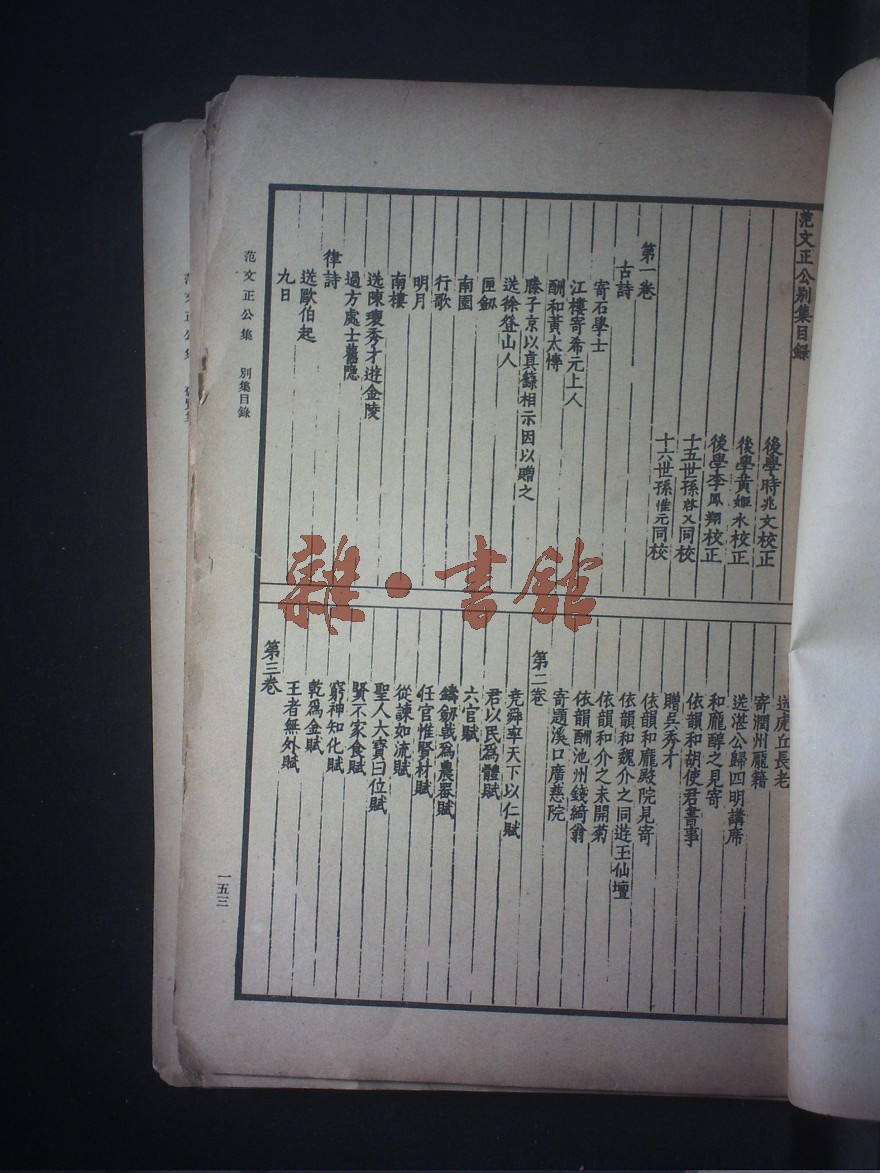 范文正公別集目錄
後學時兆文校正
後學黃姬水校正
後學李鳳翔校正
十五世孫啓乂同校
十六世孫惟元同校
第一卷
古詩
寄石學士
江樓寄希元上人
酬和黃太博
滕子京以真籙相示因以贈之
送徐登山人
匣劔
南園
行歌
明月
南樓
送陳瓊秀才遊金陵
過方處士舊隠
律詩
送歐伯起
九日
送虎丘長老
寄潤州龎籍
送湛公歸四明講席
和龎醇之見寄
依韻和胡使君書事
贈吳秀才
依韻和龎殿院見寄
依韻和魏介之同遊玉仙壇
依韻和介之未開菊
依韻酬池州錢綺翁
寄題溪口廣慈院
第二卷
堯舜率天下以仁賦
君以民爲體賦
六官賦
鑄劔戟爲農器賦
任官惟賢材賦
從諫如流賦
聖人大寶曰位賦
賢不家食賦
窮神知化賦
乾爲金賦
王者無外賦
第三卷
范文正公集 別集目錄
一五三
范文正公集
雜·書館